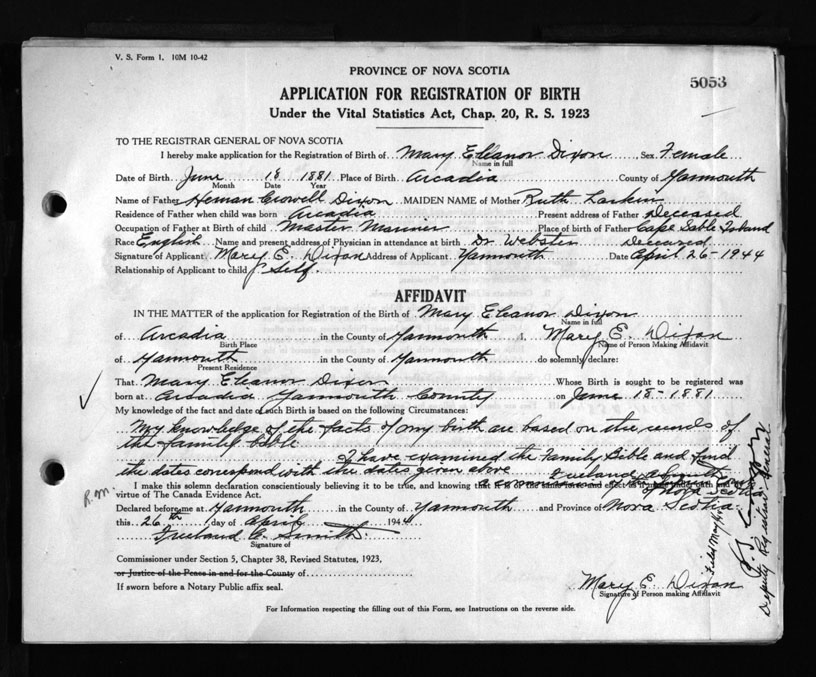 V. S. Form 1. 10M 10-42
PROVINCE OF NOVA SCOTIA
5053
APPLICATION FOR REGISTRATION OF BIRTH
Under the Vital Statistics Act, Chap. 20, R. S. 1923
TO THE REGISTRAR GENERAL OF NOVA SCOTIA
I hereby make application for the Registration of Birth of Mary Eleanor Dixon Sex Female
Name in full
Date of Birth June 18 1881 Place of Birth Arcadia County of Yarmouth
Month Date Year
Name of Father Heman Crowell Dixon MAIDEN NAME of Mother Ruth Larkin
Residence of Father when child was born Arcadia Present address of Father Deceased
Occupation of Father at Birth of child Master Mariner Place of birth of Father Cape Sable Island
Race English Name and present address of Physician in attendance at birth Dr Webster Deceased
Signature of Applicant Mary E. Dixon Address of Applicant Yarmouth Date April 26-1944
Relationship of Applicant to child Self.
AFFIDAVIT
IN THE MATTER of the application for Registration of the Birth of Mary Eleanor Dixon
Name in full
of Arcadia in the County of Yarmouth I, Mary E. Dixon
Birth Place Name of Person Making Affidavit
of Yarmouth in the County of Yarmouth do solemnly declare:
Present Residence
That Mary Eleanor Dixon Whose Birth is sought to be registered was
born at Arcadia Yarmouth County on June 18-1881
My knowledge of the fact and date of such Birth is based on the following Circumstances:
My knowledge of the facts of my birth are based on the records of
the family bible
I have examined the Family Bible and find
the dates correspond with the dates given above
I make this solemn declaration conscientiously believing it to be true, and knowing that it is of the same force and effect as if made under oath and by
virtue of The Canada Evidence Act.
of Nova Scotia
R.M.
Declared before me at Yarmouth in the County of Yarmouth and Province of Nova Scotia
this 26th day of April 1944
Freeland C. Smith
Signature of
Commissioner under Section 5, Chapter 38, Revised Statutes, 1923,
or Justice of the Peace in and for the County of
If sworn before a Notary Public affix seal.
Mary E. Dixon
Signature of Person making Affidavit
For Information respecting the filling out of this Form, see Instructions on the reverse side.
Deputy Registrar General